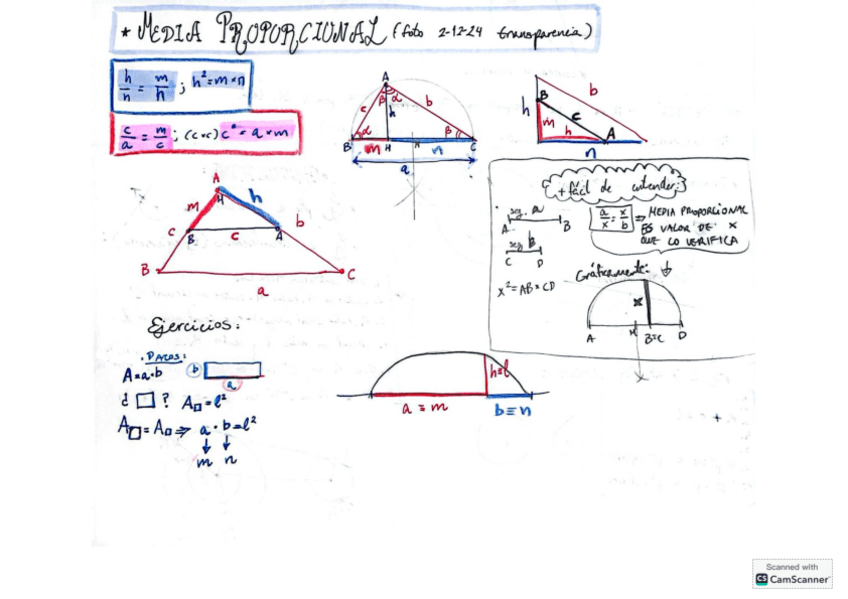 * MEDIA PROPORCIONAL (foto 2-12-24 transparencia)
h/n = m/h ; h² = m × n
c/a = m/c ; (c×c) c² = a × m
A
c β α b
h
α β
B m H n C
a
h B b
m c
h A
n
A
m H h
b
c B c A
B C
a
+ fácil de entender:
seg. a
A B
seg. b
C D
a/x = x/b ⇒ MEDIA PROPORCIONAL
ES VALOR DE X
QUE LO VERIFICA
x² = AB × CD
Gráficamente: ↓
x
A M B=C D
Ejercicios:
. PAZOS:
A = a·b b
a
¿ □ ? A□ = l²
A▭ = A□ ⇒ a · b = l²
↓ ↓
m n
h=l
a = m b ≡ n
Scanned with
CS CamScanner